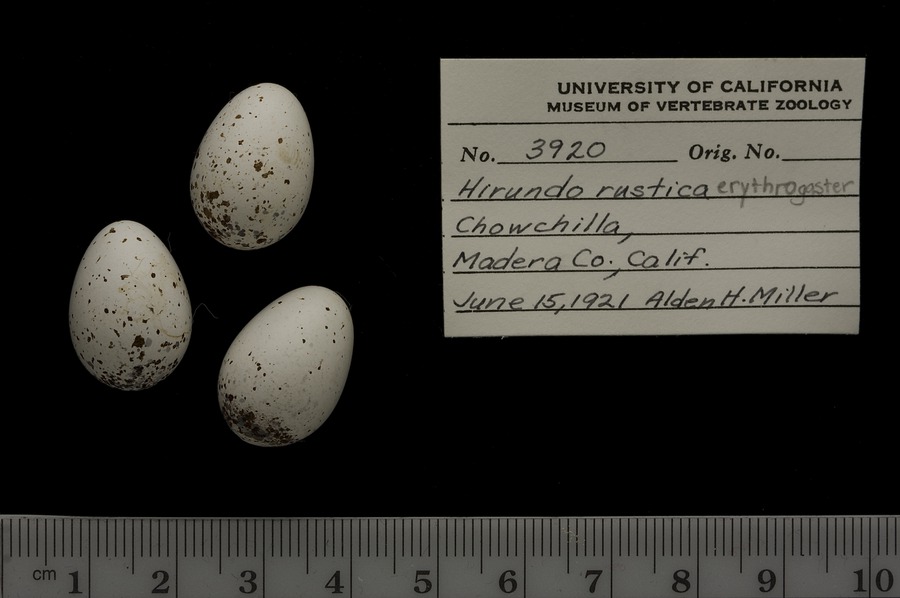 UNIVERSITY OF CALIFORNIA
MUSEUM OF VERTEBRATE ZOOLOGY
No. 3920 Orig. No.
Hirundo rustica erythrogaster
Chowchilla,
Madera Co., Calif.
June 15, 1921 Alden H. Miller
cm 1 2 3 4 5 6 7 8 9 10